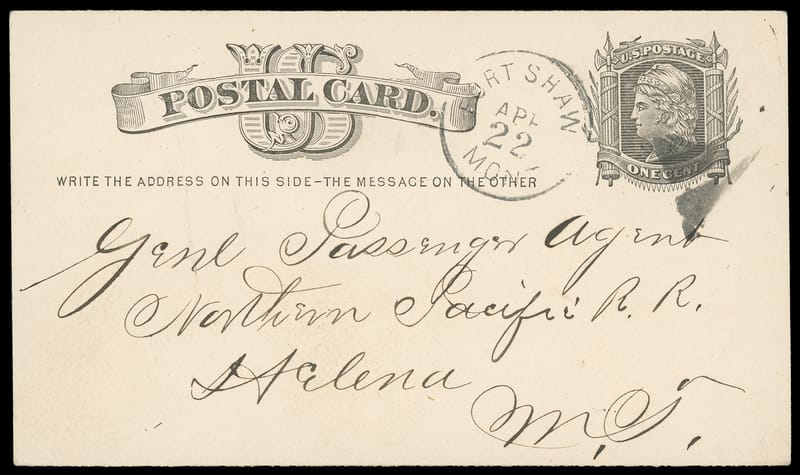 US
POSTAL CARD.
FORT SHAW
APR
22
MON.
U.S. POSTAGE
ONE CENT
WRITE THE ADDRESS ON THIS SIDE – THE MESSAGE ON THE OTHER
Genl Passenger Agent
Northern Pacific R. R.
Helena
M. T.